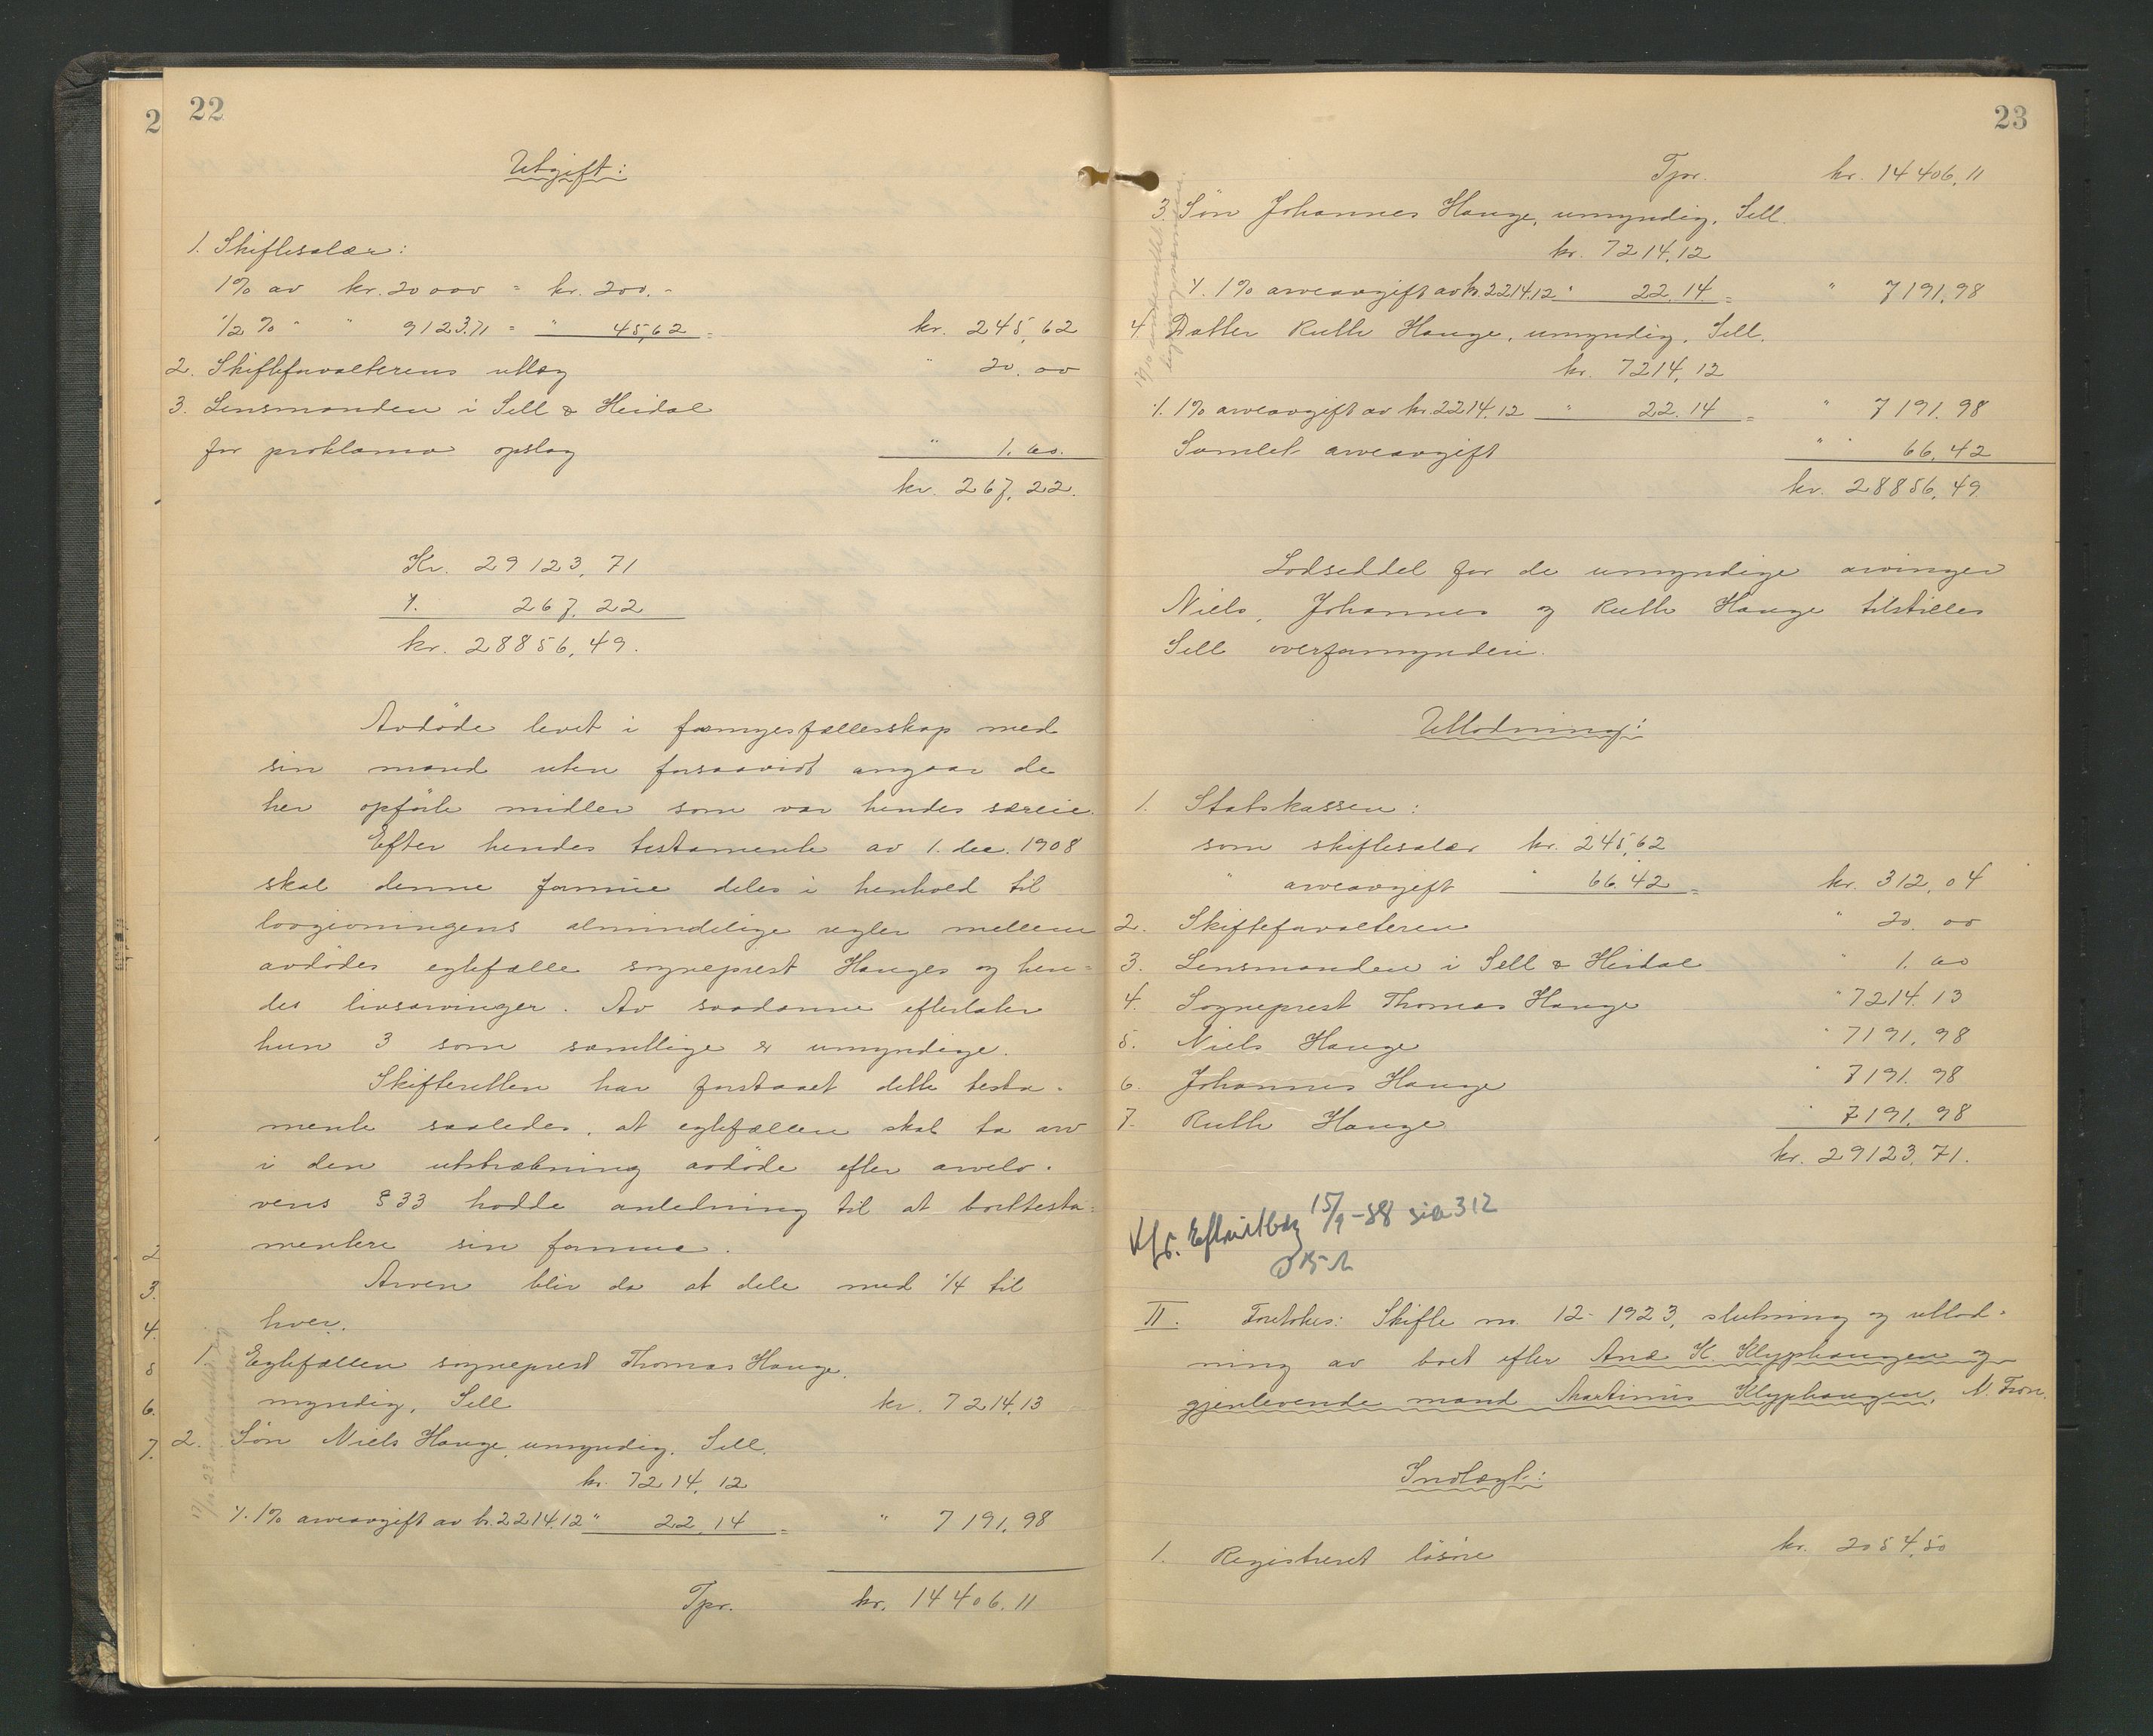 22
Utgift:
1. Skiftesalær:
1% av kr. 20000 = kr. 200.-
1/2 % " " 9123.71 = " 45,62 = kr. 245,62
2. Skifteforvalterens utlæg " 20.00
3. Lensmanden i Sell & Heidal
for proklama opslag " 1.60.
kr. 267,22.
Kr. 29123,71
÷ 267,22
kr. 28856,49.
Avdöde levet i formuesfællesskap med
sin mand uten forsaavidt angaar de
her opförte midler som var hendes særeie.
Efter hendes testamente av 1. dec. 1908
skal denne formue deles i henhold til
lovgivningens almindelige regler mellem
avdödes egtefælle sogneprest Hauges og hen-
des livsarvinger. Av saadanne efterlater
hun 3 som samtlige er umyndige.
Skifteretten har forstaaet dette testa-
mente saaledes, at egtefællen skal ta arv
i den utstrækning avdöde efter arvelo-
vens § 33 hadde anledning til at borttesta-
mentere sin formue.
Arven blir da at dele med 1/4 til
hver.
1. Egtefællen sogneprest Thomas Hauge,
myndig, Sell kr. 7214,13
2. Sön Niels Hauge, umyndig, Sell.
kr. 7214,12
÷ 1% arveavgift av kr. 2214,12 " 22.14 = " 7191,98
Tpr. kr. 14406.11
23
Tpr. kr. 14406,11
3. Sön Johannes Hauge, umyndig, Sell.
kr. 7214,12
÷ 1% arveavgift av kr. 2214,12 " 22.14 = " 7191,98
4. Datter Ruth Hauge, umyndig, Sell.
kr. 7214,12
÷ 1% arveavgift av kr. 2214,12 " 22.14 = " 7191,98
Samlet arveavgift " 66,42
kr. 28856,49.
Lodseddel for de umyndige arvinger
Niels, Johannes og Ruth Hauge tilstilles
Sell overformynderi.
Utlodning:
1. Statskassen:
som skiftesalær kr. 245,62
" arveavgift " 66.42 = kr. 312,04
2. Skifteforvalteren " 20.00
3. Lensmanden i Sell & Heidal " 1.60
4. Sogneprest Thomas Hauge " 7214.13
5. Niels Hauge " 7191,98
6. Johannes Hauge " 7191.98
7. Ruth Hauge " 7191,98
kr. 29123,71.
15/9-38 sia 312
II. Foretokes: Skifte no. 12-1923, slutning og utlod-
ning av boet efter Ane K. Klyphaugen og
gjenlevende mand Martinus Klyphaugen, N. Fron.
Indtægt:
1. Registreret lösöre kr. 2054,50